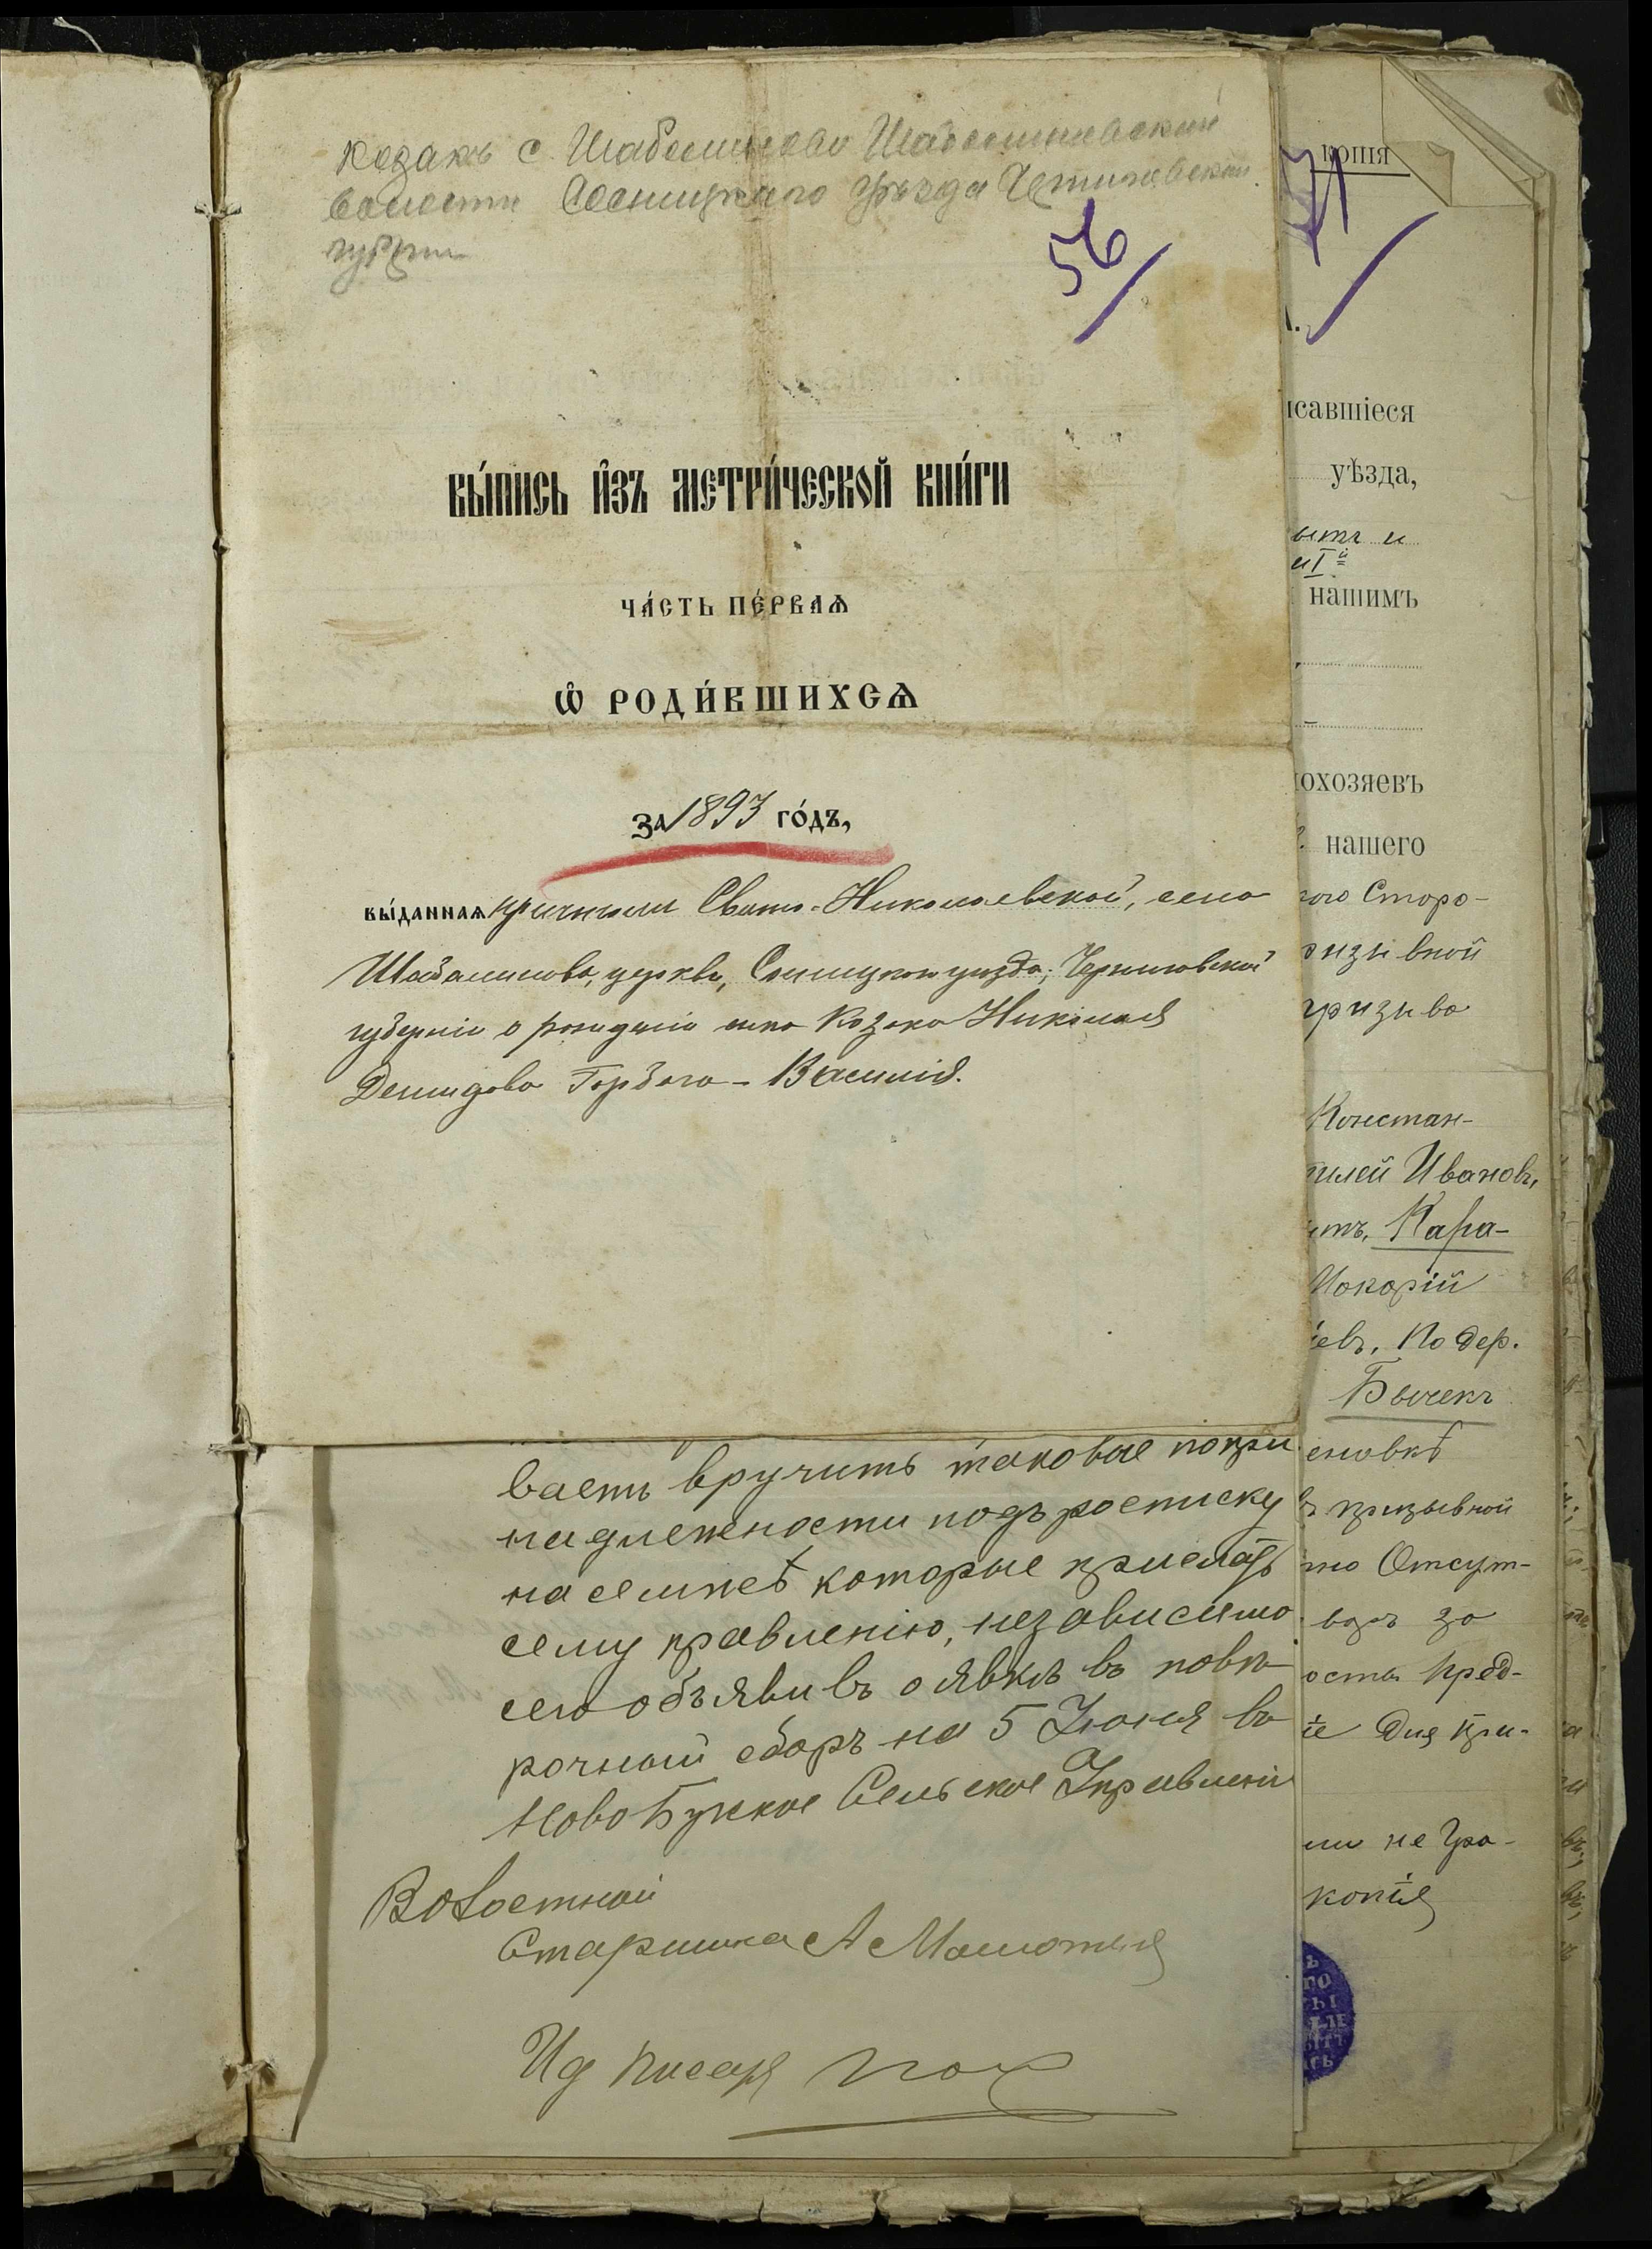 Козакъ с. Шабалиново Шабалиновской
волости Сосницкаго уѣзда Черниговской
губерн.
56
копія
ВЫ́ПИСЬ И҆ЗЪ МЕТРИ́ЧЕСКОЙ КНИ́ГИ
ЧА́СТЬ ПЕ́РВАѦ
Ѡ҆ РОДИ́ВШИХСѦ
ЗА 1893 ГО́ДЪ,
ВЫ́ДАННАѦ причтомъ Свято-Николаевской, села
Шабалинова, церкви, Сосницкаго уѣзда, Черниговской
губерніи о рожденіи сына Козака Николая
Демидова Горбача - Василія.
ваетъ вручить таковые по при
надлежности подъ росписку
на семже которые прислать
сему правленію, независимо
сего объявивъ о явкѣ въ повѣ
рочный сборъ на 5 Іюня въ
Ново Бугское Сельское Управленіе
Волостной
Старшина А
Ид Писаря
исавшіеся
уѣзда,
нашимъ
охозяевъ
нашего
Сторо-
зывной
призыва
Констан-
Ивановъ,
Кара-
Макарій
евъ, Подер.
Бычекъ
еновкѣ
призывной
Отсут-
за
Пред-
Для при-
не Гра-
копія